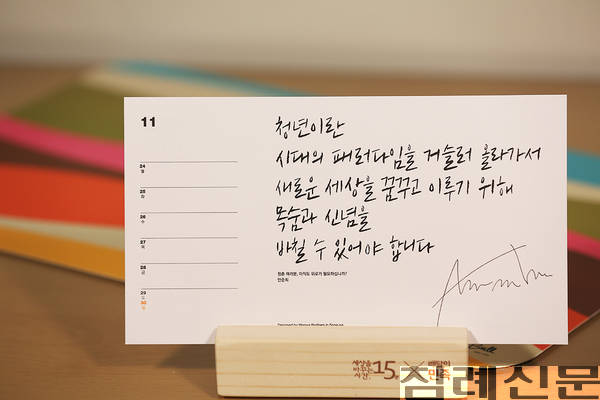 11
청년이란
시대의 패러다임을 거슬러 올라가서
새로운 세상을 꿈꾸고 이루기 위해
목숨과 신념을
바칠 수 있어야 합니다
청춘 여러분, 아직도 위로가 필요하십니까?
24
월
25
화
26
수
27
목
28
금
29
토
30
일
세상을
바꾸는
시간, 15분
배달의
민족
침례신문